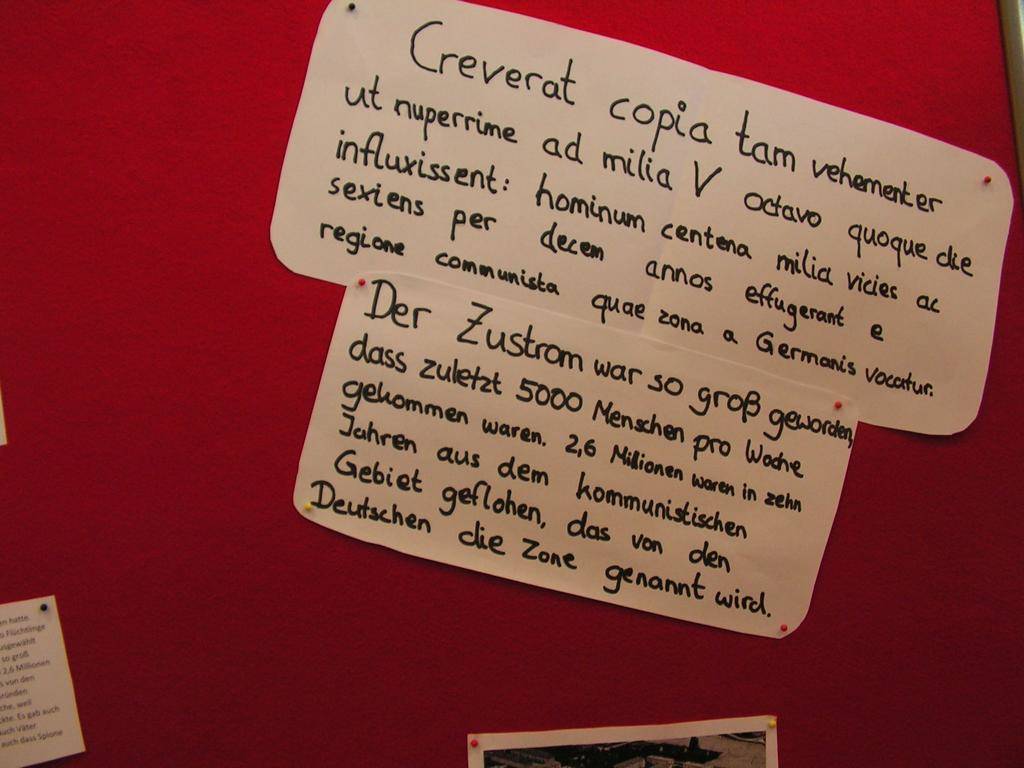 Creverat copia tam vehementer
ut nuperrime ad milia V octavo quoque die
influxissent: hominum centena milia vicies ac
sexiens per decem annos effugerant e
regione communista quae zona a Germanis vocatur.
Der Zustrom war so groß geworden,
dass zuletzt 5000 Menschen pro Woche
gekommen waren. 2,6 Millionen waren in zehn
Jahren aus dem kommunistischen
Gebiet geflohen, das von den
Deutschen die Zone genannt wird.
en hatte.
o Flüchtlinge
usgewählt
so groß
2,6 Millionen
s von den
ründen
che, weil
kte. Es gab auch
auch Väter
auch dass Spione